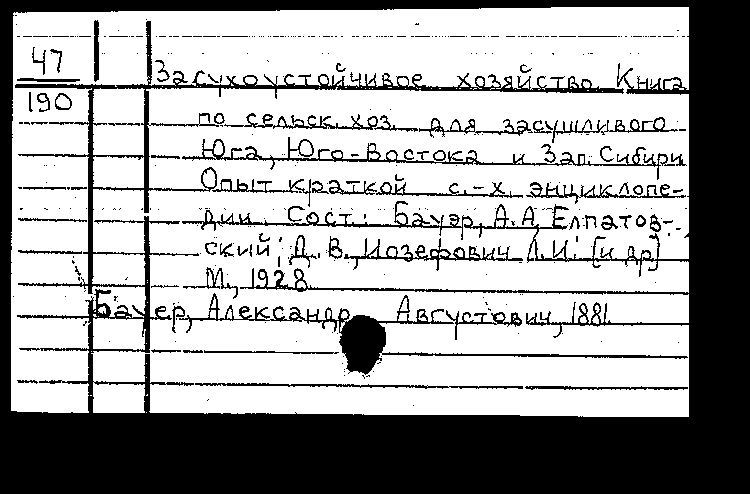 47
190
Засухоустойчивое хозяйство. Книга
по сельск. хоз. для засушливого
Юга, Юго-Востока и Зап. Сибири
Опыт краткой с.-х. энциклопе-
дии. Сост.: Бауэр, А.А, Елпатов-
ский, Д. В., Иозефович Л.И. [и др]
М., 1928.
Бауер, Александр Августович, 1881